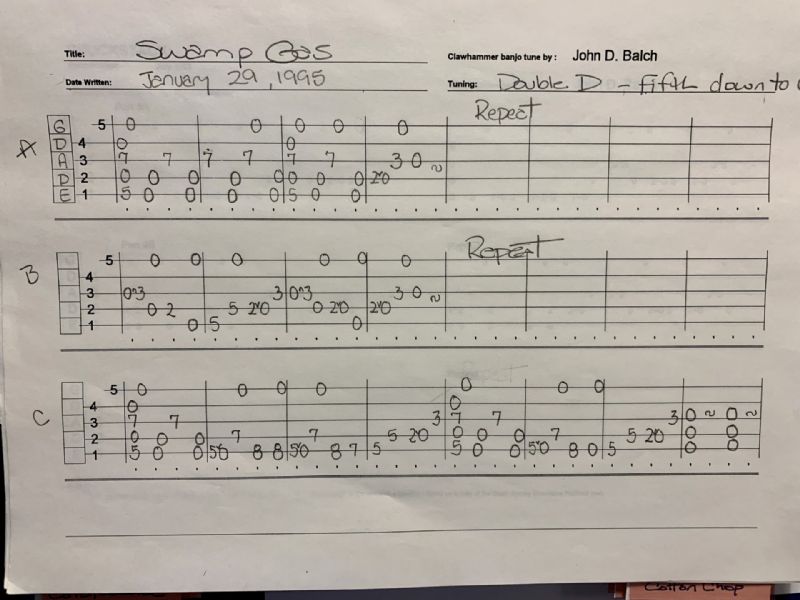 Title: Swamp Gas
Clawhammer banjo tune by: John D. Balch
Date Written: January 29, 1995
Tuning: Double D - fifth down to
Repeat
A
G 5 0 0 0 0 0
D 4 0 0
A 3 7 7 7 7 7 7 3 0 ~
D 2 0 0 0 0 0 0 0 0 2^0
E 1 5 0 0 0 0 5 0 0
Repeat
B
5 0 0 0 0 0 0
4
3 0^3 3 0^3 3 0 ~
2 0 2 5 2^0 0 2^0 2^0
1 0 5 0
C
5 0 0 0 0 0 0 0
4 0 0
3 7 7 3 7 7 3 0 ~ 0 ~
2 0 0 0 7 7 5 2^0 0 0 0 7 5 2^0 0 0
1 5 0 0 5^0 8 8 5^0 8 7 5 5 0 0 5^0 8 0 5 0 0
Cotton Chop